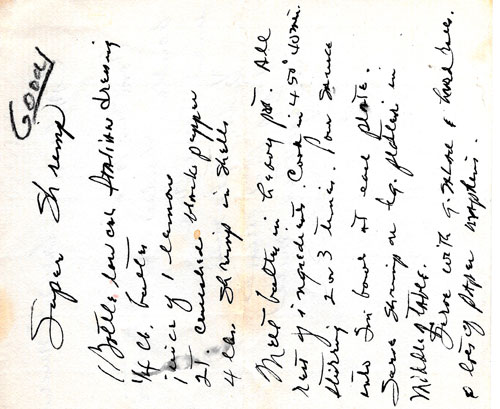 Super Shrimp Good
1 Bottle low cal Italian dressing
1/4 lb. butter
juice of 1 lemon
2 T. crushed black pepper
4 lbs Shrimp in shells
Melt butter in heavy pot. All
rest of ingredients. Cook in 450° 40 min.
stirring 2 or 3 times. Pour sauce
into sm bowl at each plate.
Serve Shrimp on lg. platter in
Middle of table.
Serve with G. Salad & bread
& lots of paper napkins.